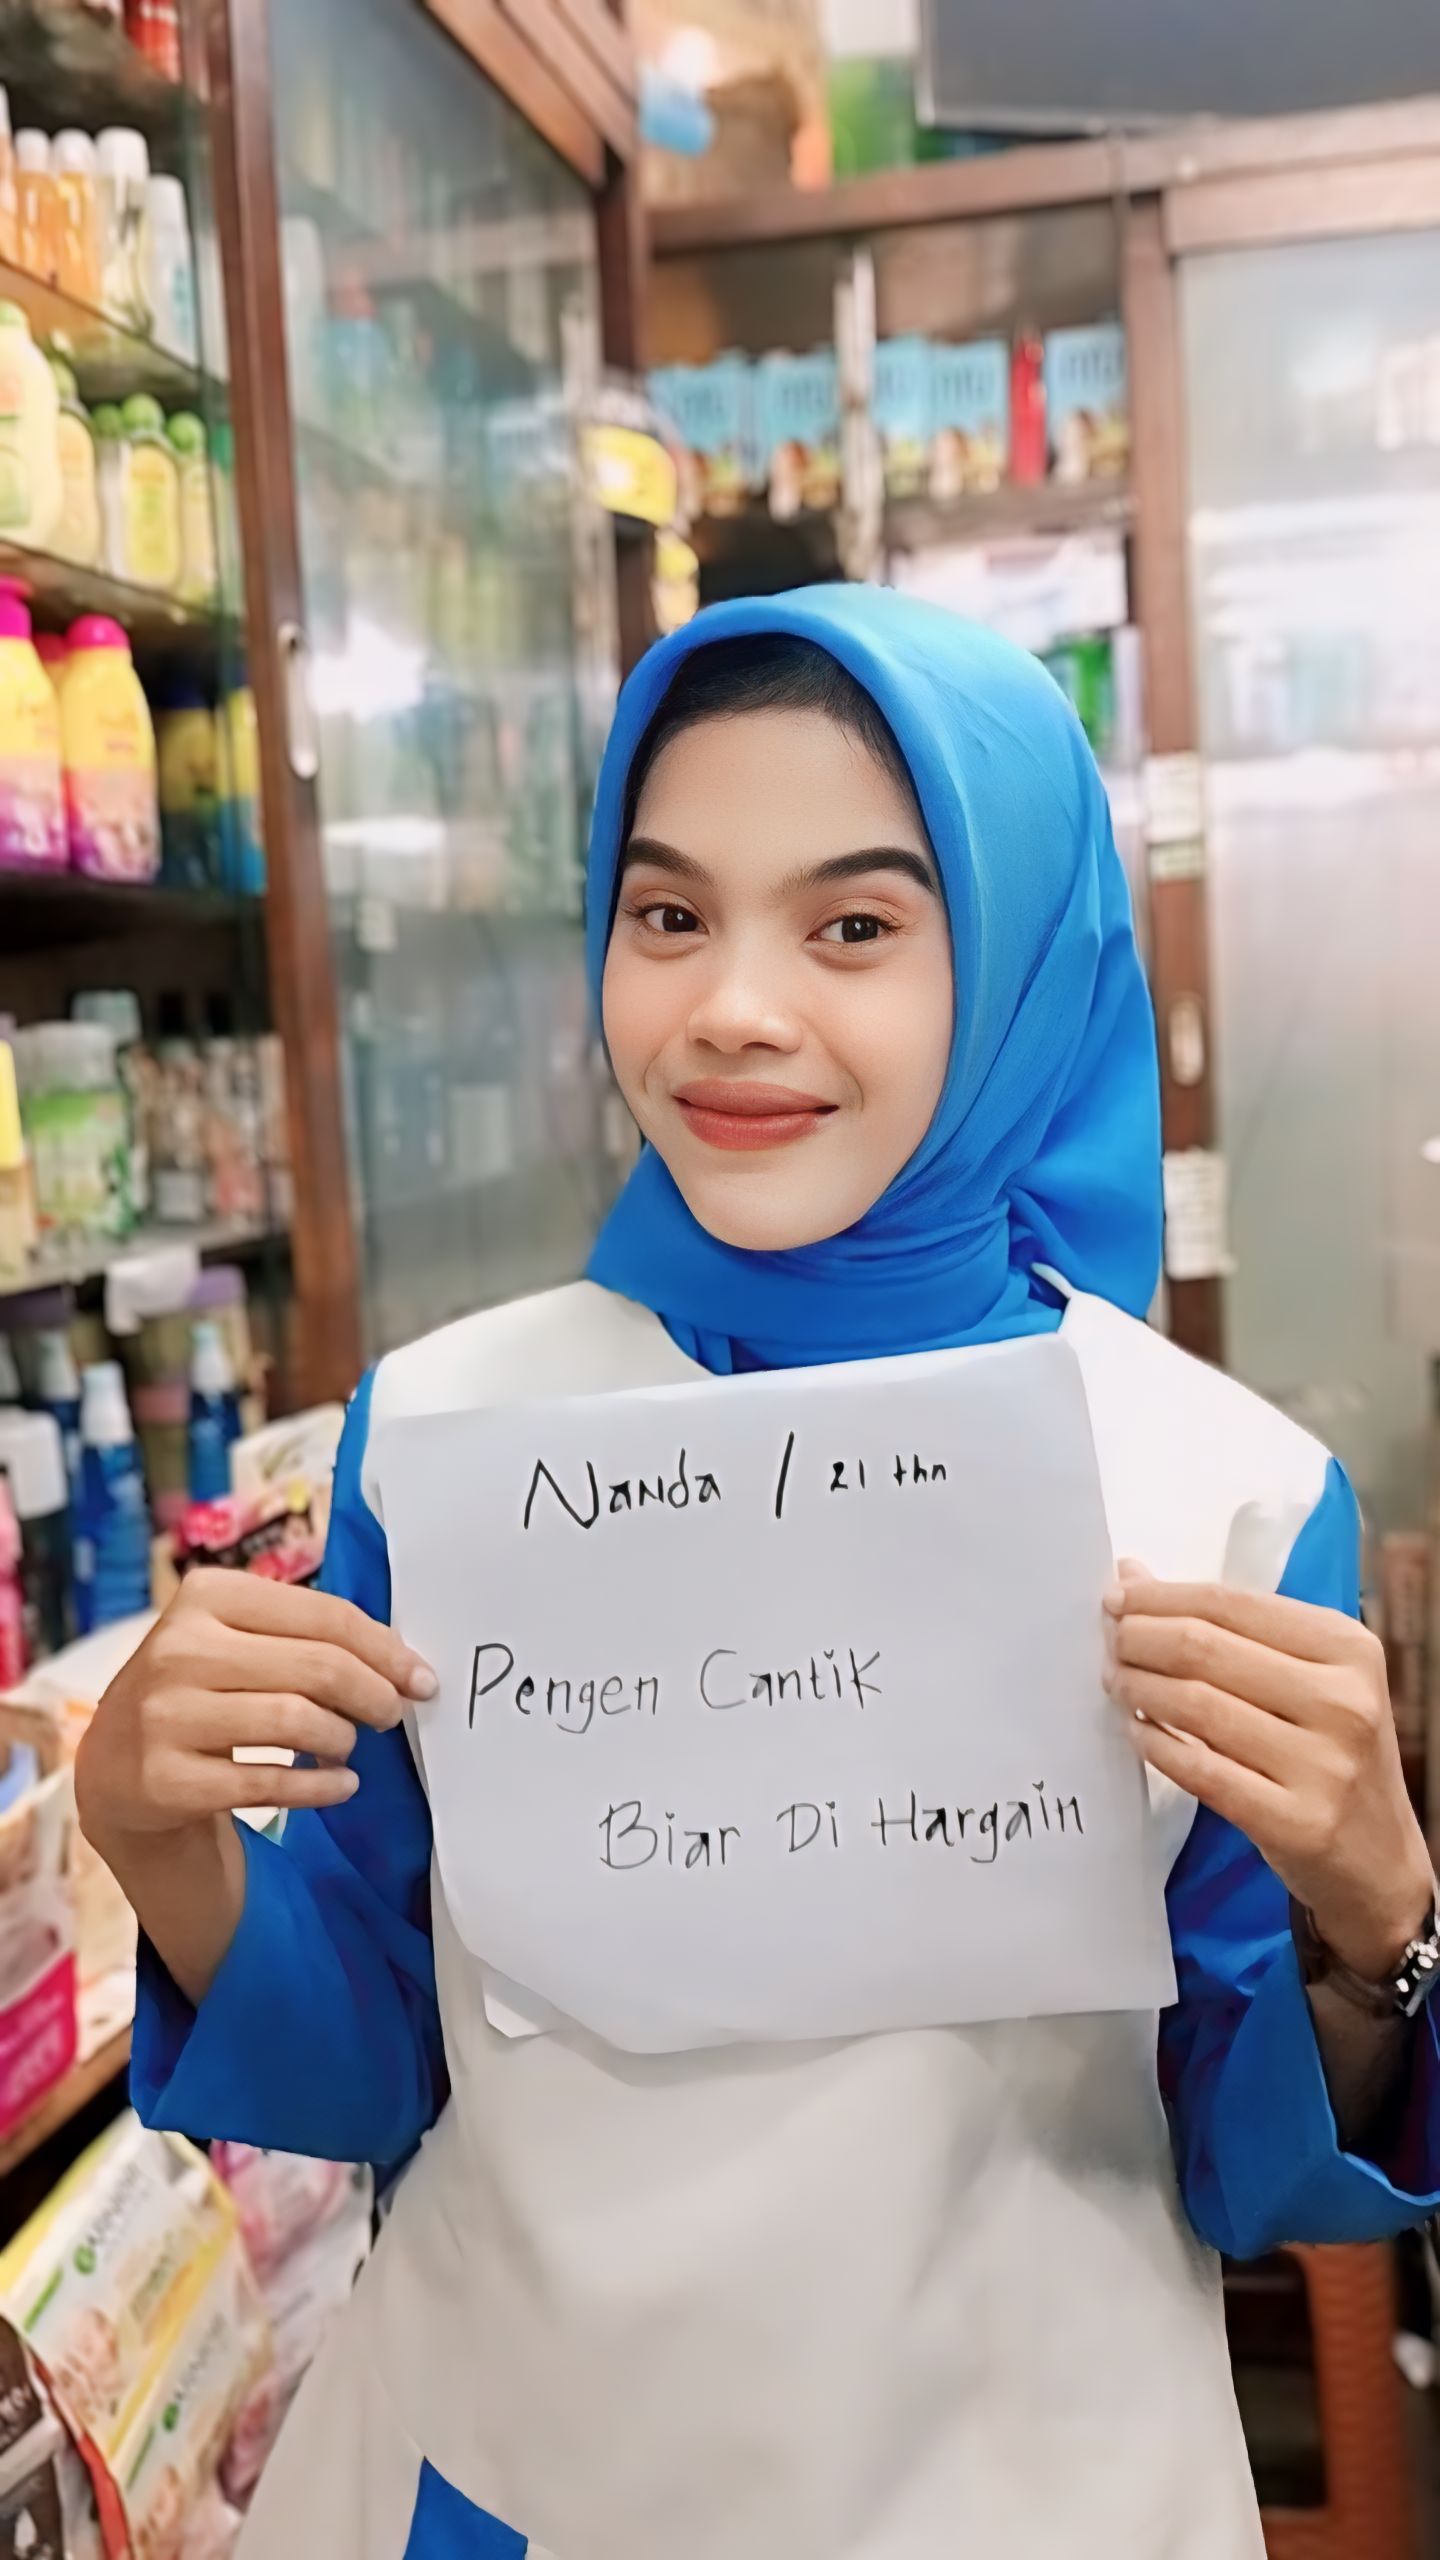 Nanda / 21 thn
Pengen Cantik
Biar Di Hargain
GARNIER
GARNIER